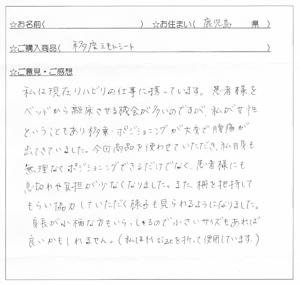 ☆お名前（　　　　　　　　）　☆お住まい（ 鹿児島 県 ）
☆ご購入商品（ 移座えもんシート ）
☆ご意見・ご感想
私は現在リハビリの仕事に携っています。患者様を
ベッドから離床させる機会が多いのですが、私が女性
ということもあり移乗・ポジショニングが大変で腰痛が
出てきていました。今回商品を使わせていただき、私自身も
無理なくポジショニングできるだけでなく、患者様にも
息切れや負担が少なくなりました。また、柵を把持して
もらい協力していただく様子も見られるようになりました。
身長が小柄な方もいらっしゃるので小さいサイズもあれば
良いかもしれません。（私はM sizeを折って使用しています。）